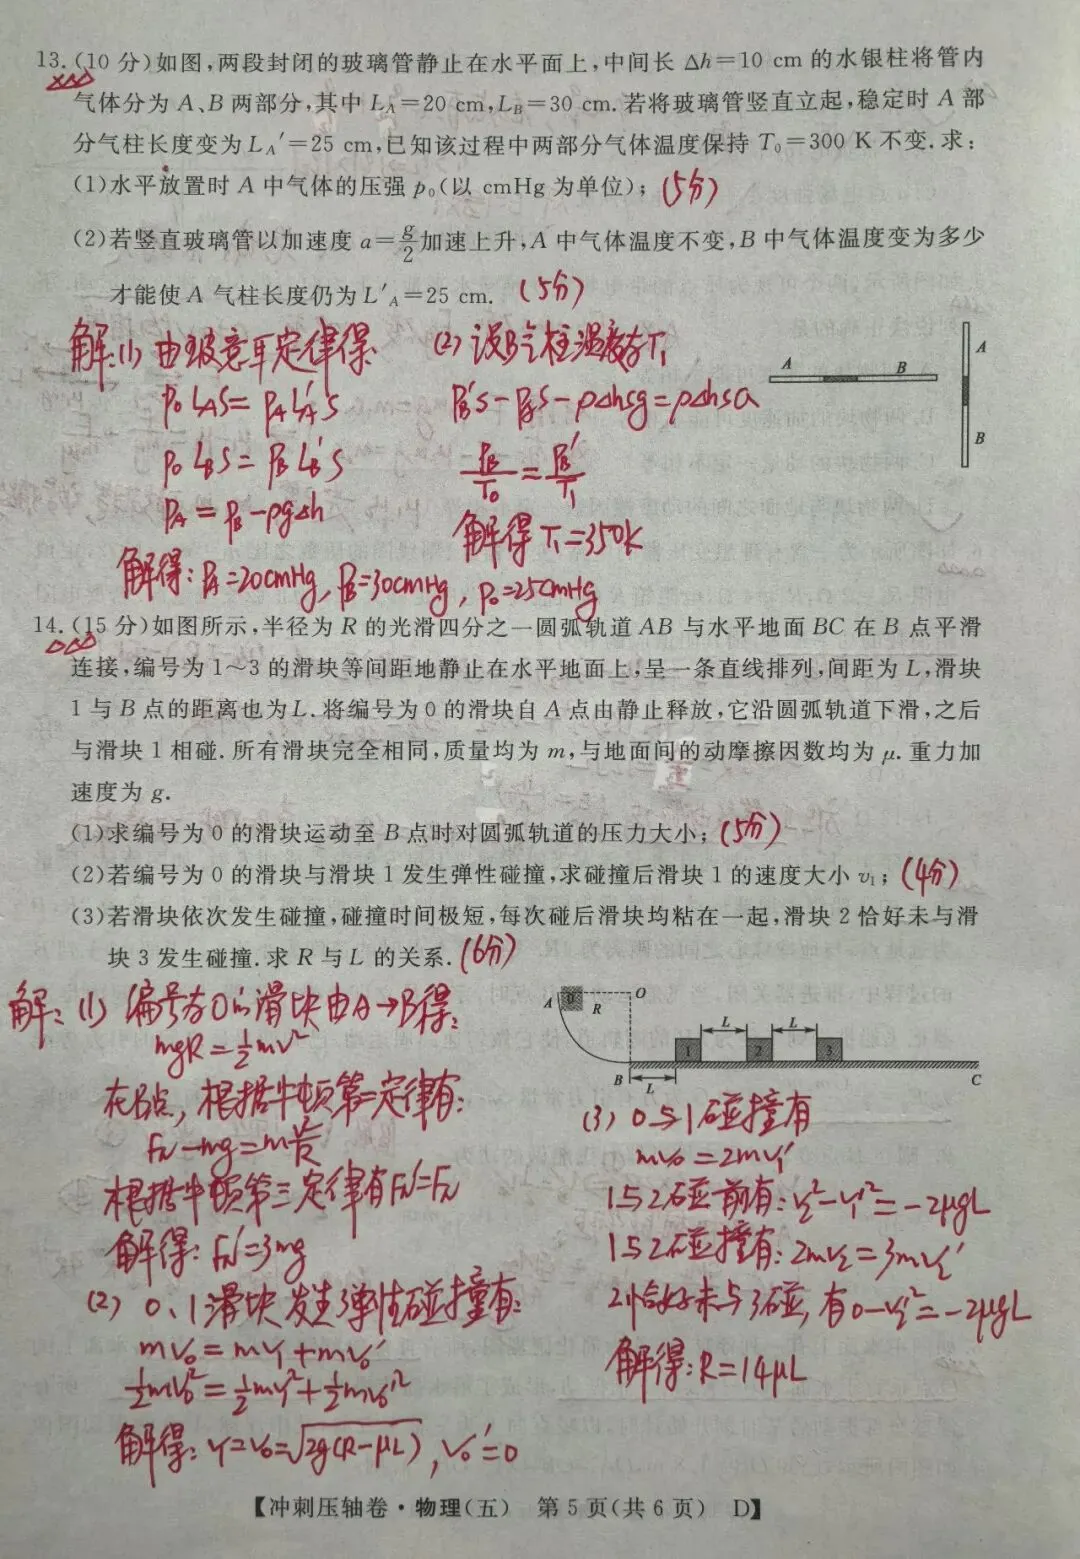 13.(10 分)如图,两段封闭的玻璃管静止在水平面上,中间长 Δh=10 cm 的水银柱将管内
气体分为 A、B 两部分,其中 L_A=20 cm,L_B=30 cm. 若将玻璃管竖直立起,稳定时 A 部
分气柱长度变为 L_A′=25 cm,已知该过程中两部分气体温度保持 T₀=300 K 不变.求:
(1)水平放置时 A 中气体的压强 p₀(以 cmHg 为单位); (5分)
(2)若竖直玻璃管以加速度 a=g/2加速上升,A 中气体温度不变,B 中气体温度变为多少
才能使 A 气柱长度仍为 L′_A=25 cm. (5分)
解:(1) 由玻意耳定律得:
P₀L_AS=P_AL_A′S
P₀L_BS=P_BL_B′S
P_A=P_B-ρgΔh
解得:P_A=20cmHg, P_B=30cmHg, P₀=25cmHg
(2) 设B气柱温度为T₁
P_B′S-P_AS-ρΔhSg=ρΔhSa
P_B/T₀=P_B′/T₁
解得T₁=350K
A B
A
B
14.(15 分)如图所示,半径为 R 的光滑四分之一圆弧轨道 AB 与水平地面 BC 在 B 点平滑
连接,编号为 1~3 的滑块等间距地静止在水平地面上,呈一条直线排列,间距为 L,滑块
1 与 B 点的距离也为 L. 将编号为 0 的滑块自 A 点由静止释放,它沿圆弧轨道下滑,之后
与滑块 1 相碰. 所有滑块完全相同,质量均为 m,与地面间的动摩擦因数均为 μ. 重力加
速度为 g.
(1)求编号为 0 的滑块运动至 B 点时对圆弧轨道的压力大小; (5分)
(2)若编号为 0 的滑块与滑块 1 发生弹性碰撞,求碰撞后滑块 1 的速度大小 v₁; (4分)
(3)若滑块依次发生碰撞,碰撞时间极短,每次碰后滑块均粘在一起,滑块 2 恰好未与滑
块 3 发生碰撞. 求 R 与 L 的关系. (6分)
解:(1) 编号为0的滑块由A→B得:
mgR=½mv²
在B点,根据牛顿第二定律有:
F_N-mg=mv²/R
根据牛顿第三定律有F_N′=F_N
解得:F_N′=3mg
(2) 0、1滑块发生弹性碰撞有:
mv₀=mv₁+mv₀′
½mv₀²=½mv₁²+½mv₀′²
解得:v₁=v₀=√2g(R-μL), v₀′=0
A 0 R O
L L
1 2 3
B L C
(3) 0与1碰撞有
mv₀=2mv₁′
1与2碰前有:v₂²-v₁′²=-2μgL
1与2碰撞有:2mv₂=3mv₂′
2恰好未与3碰,有0-v₂′²=-2μgL
解得:R=14μL
【冲刺压轴卷·物理(五) 第 5 页(共 6 页) D】